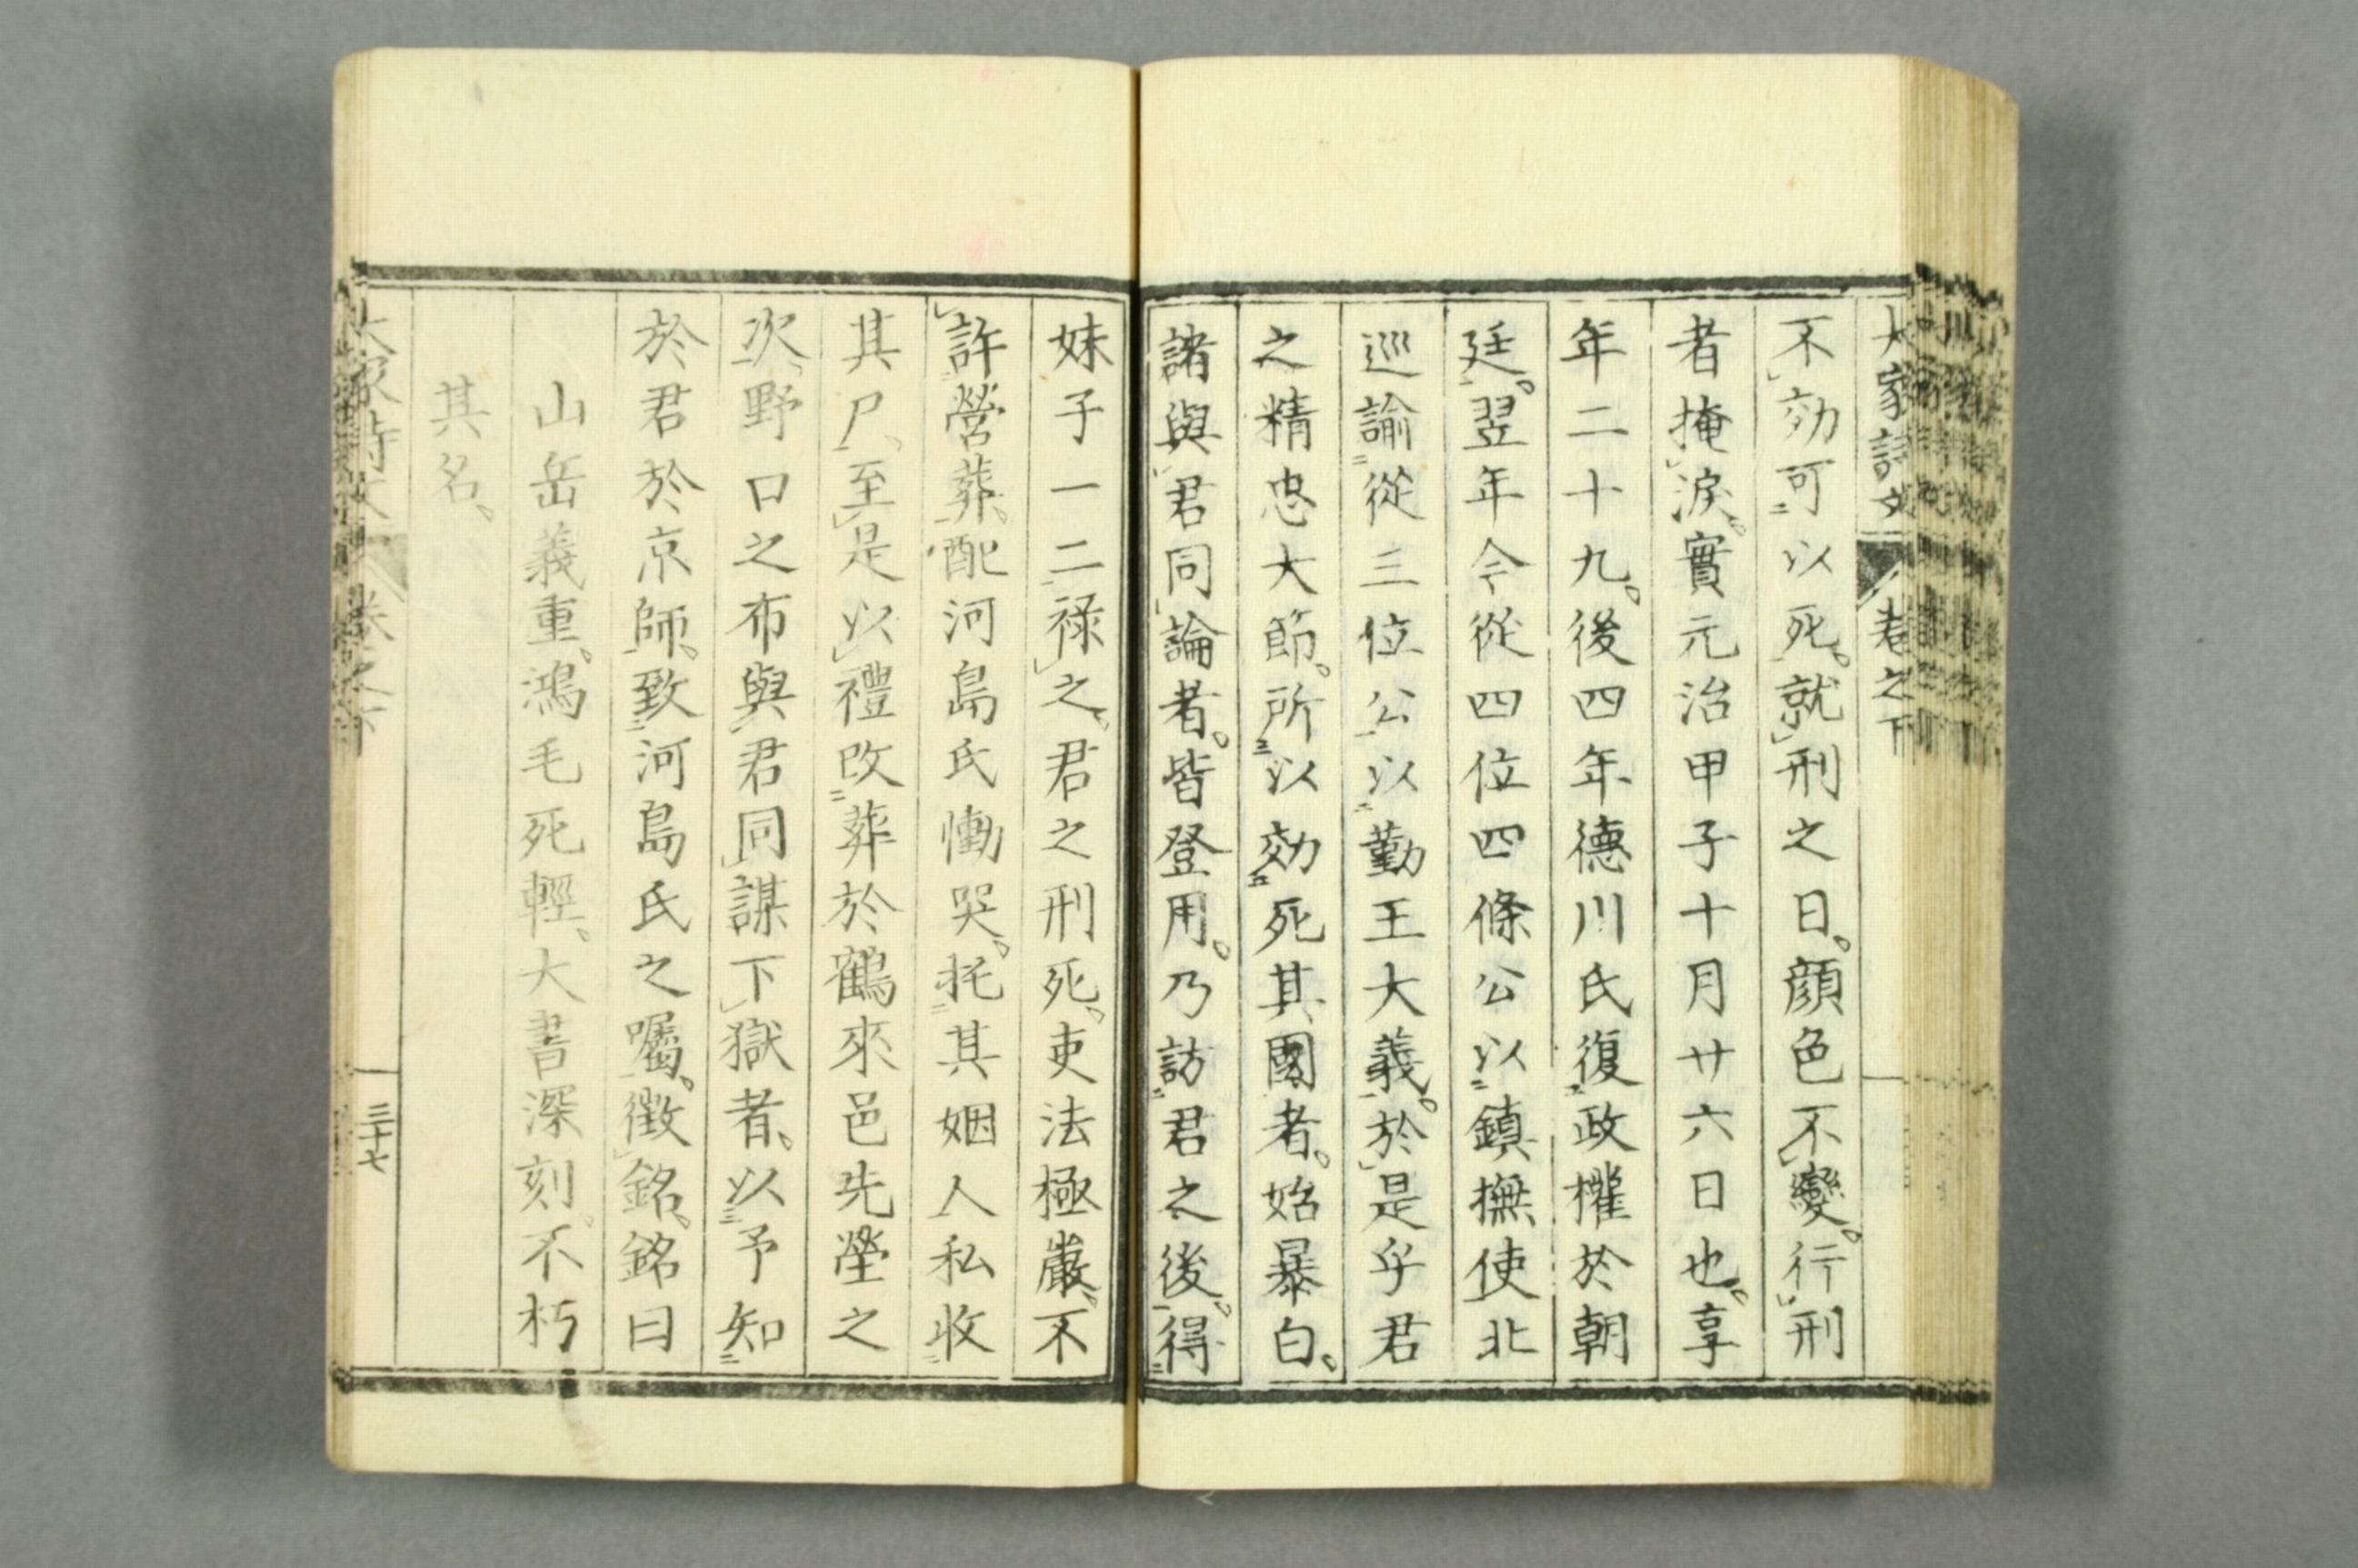 大家詩文 卷之下
不効可以死。就刑之日。顔色不變。行刑
者掩淚。實元治甲子十月廿六日也。享
年二十九。後四年德川氏復政權於朝
廷。翌年令從四位四條公以鎮撫使北
巡諭從三位公以勤王大義。於是乎君
之精忠大節。所以効死其國者。始暴白。
諸與君同論者。皆登用。乃訪君之後。得
妹子一二祿之、君之刑死、吏法極嚴、不
許營葬、配河島氏慟哭、托其姻人私收
其尸、至是以禮改葬於鶴來邑先塋之
次、野口之布與君同謀下獄者、以予知
於君於京師、致河島氏之囑、徵銘、銘曰
山岳義重、鴻毛死輕、大書深刻、不朽
其名、
大家詩文 卷之下 三十七